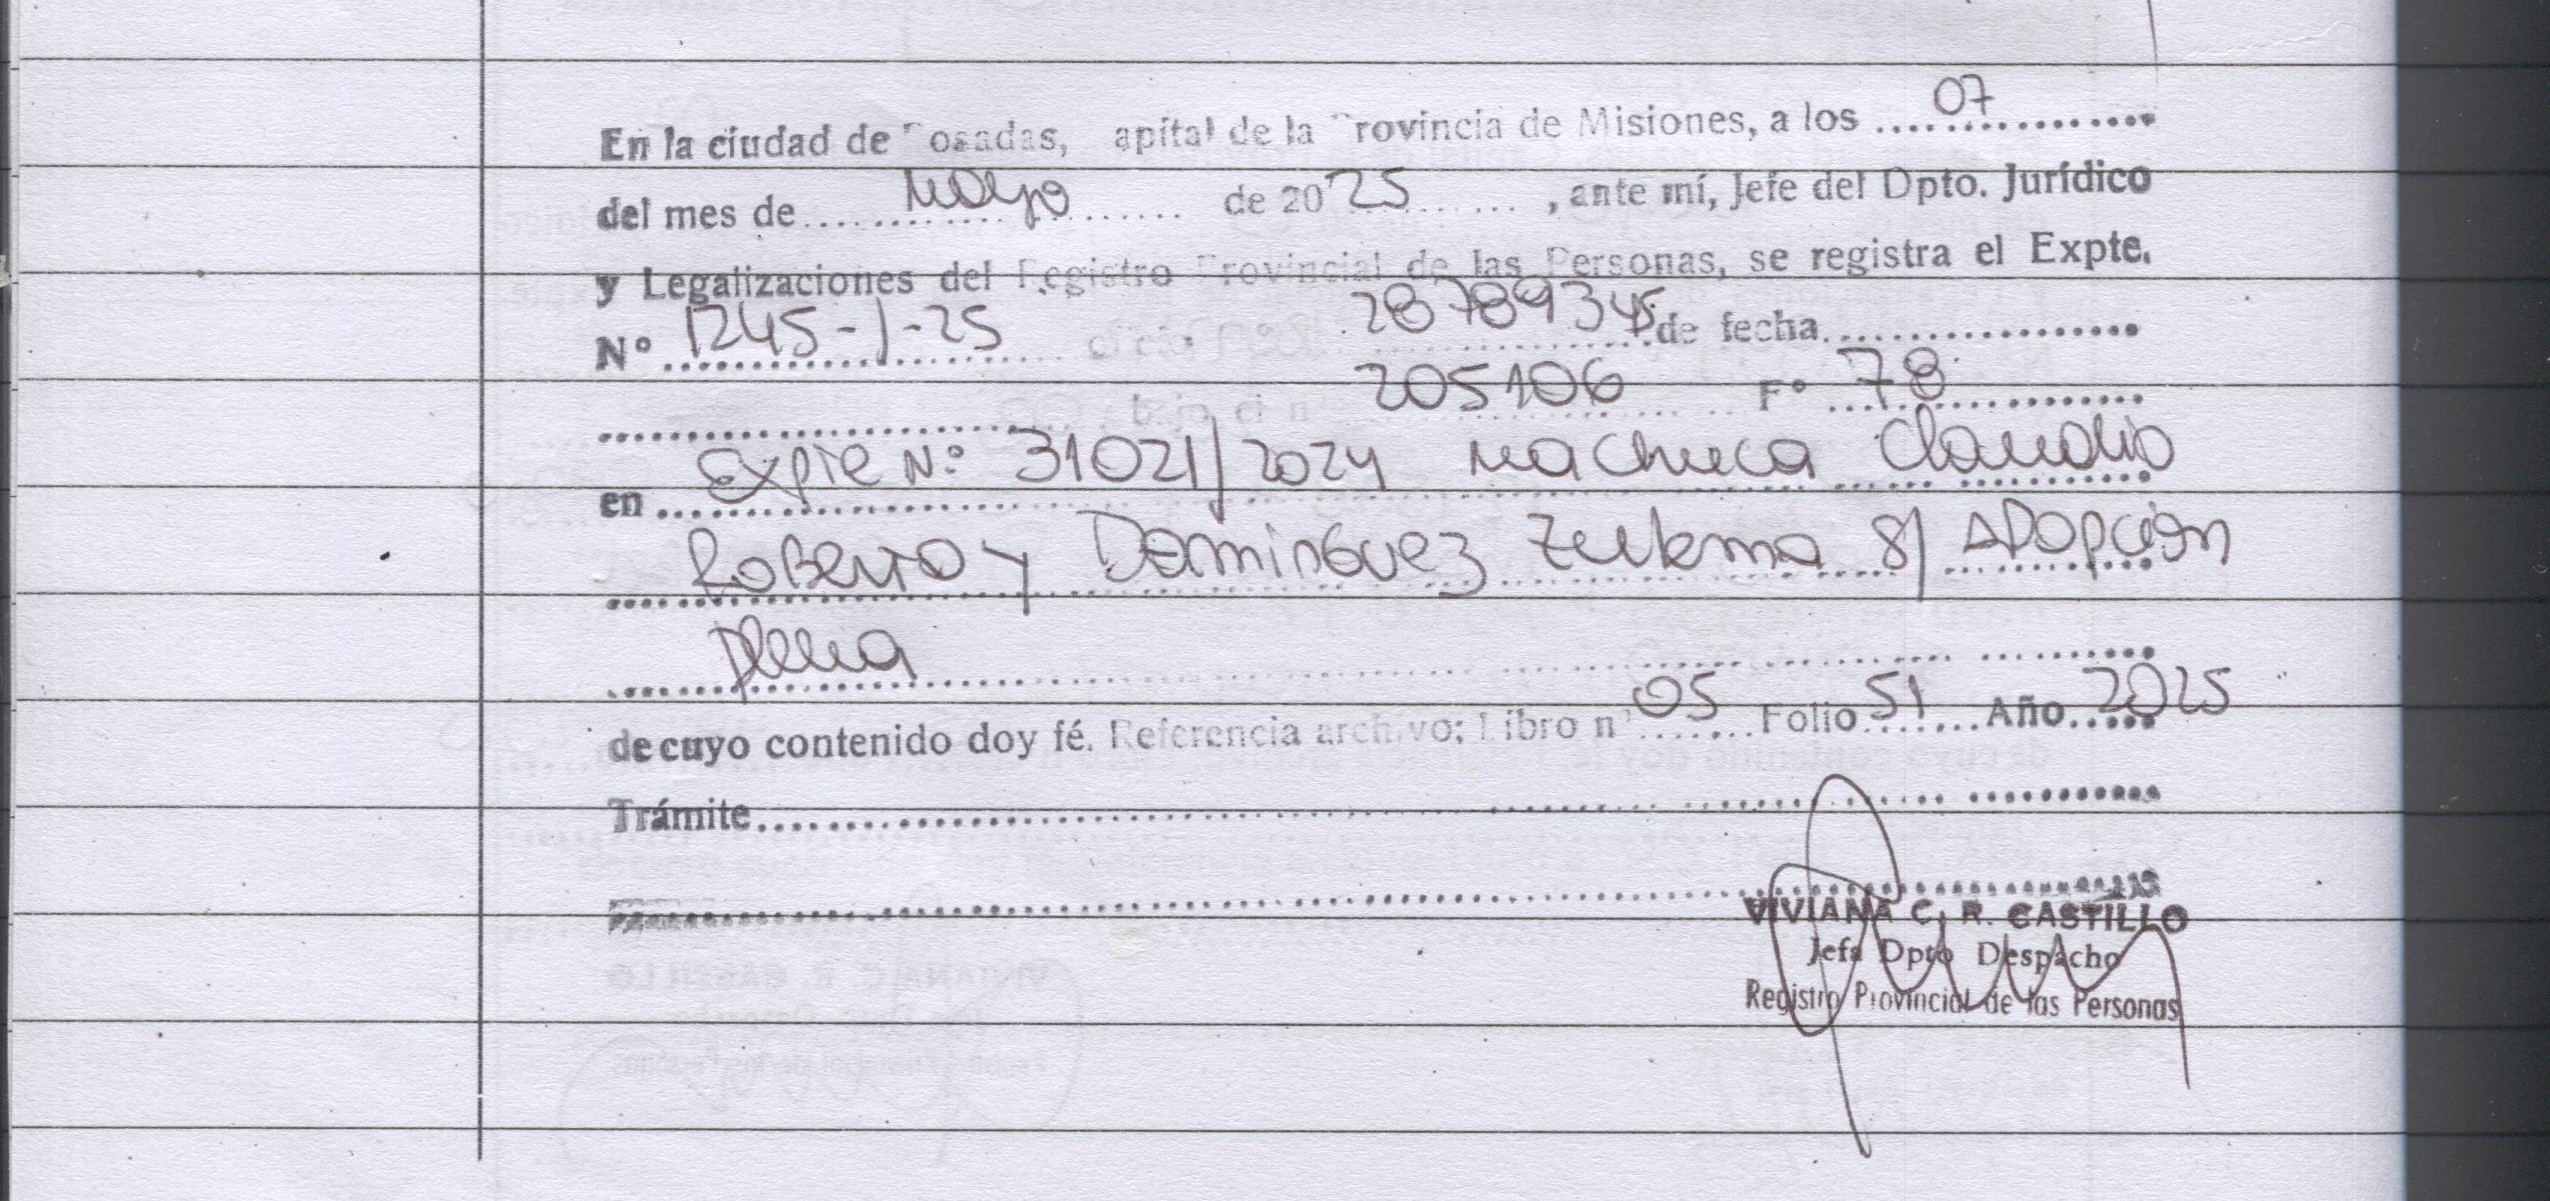 En la ciudad de Posadas, Capital de la Provincia de Misiones, a los ....07....
del mes de ....Mayo.... de 2025...., ante mí, Jefe del Dpto. Jurídico
y Legalizaciones del Registro Provincial de las Personas, se registra el Expte.
Nº ....1245-1-25.... oficio nº 28789345 de fecha....
.... bajo el nº 205106 Fº 78
en .... Expte Nº: 31021/2024 Machuca Claudio
Roberto y Dominguez Zulema S/ Adopción
Plena
de cuyo contenido doy fé. Referencia archivo; Libro nº 05 Folio 51 Año 2025
Trámite....
VIVIANA C. R. CASTILLO
Jefa Dpto Despacho
Registro Provincial de las Personas